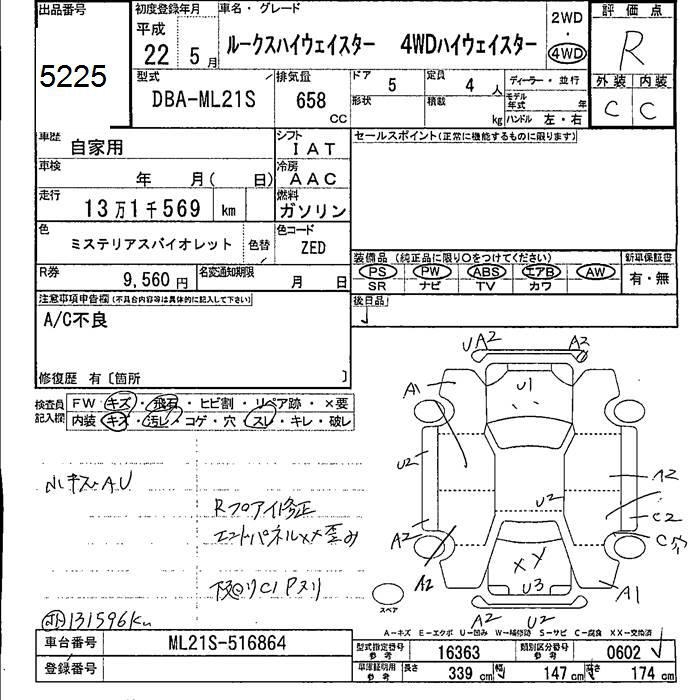 出品番号
5225
初度登録年月
平成
22 5月
車名・グレード
ルークスハイウェイスター 4WDハイウェイスター
2WD
・
4WD
評価点
R
外装 内装
C C
型式
DBA-ML21S
排気量
658
CC
ドア 5
定員 4 人
形状
積載 kg
ディーラー・並行
モデル年式 年
ハンドル 左・右
車歴
自家用
シフト
IAT
車検
年 月( 日)
冷房
AAC
走行
13万1千569 km
燃料
ガソリン
色
ミステリアスバイオレット
色替
色コード
ZED
R券
9,560円
名変通知期限
月 日
セールスポイント(正常に機能するものに限ります)
装備品 (純正品に限り○をつけてください)
新車保証書
PS PW ABS エアB AW
SR ナビ TV カワ
有・無
後日品
注意事項申告欄(不具合内容等は具体的に記入して下さい)
A/C不良
修復歴 有〔箇所 〕
検査員記入欄
FW キズ・飛石・ヒビ割・リペア跡・×要
内装 キズ・汚レ・コゲ・穴・スレ・キレ・破レ
小キズA,U
Rフロアイ修正
エンドパネルXX歪み
下廻りC1Pヌリ
131596Km
UA2 A2
U1
A1
U2
A2
U2
A2
C2
A2
A2
XY
U3
A1
A2 U2
スペア
A-キズ E-エクボ U-凹み W-補修跡 S-サビ C-腐食 XX-交換済
車台番号
ML21S-516864
登録番号
型式指定番号 参考
16363
類別区分番号 参考
0602
車庫証明用 参考
長さ 339 cm
幅 147 cm
高さ 174 cm